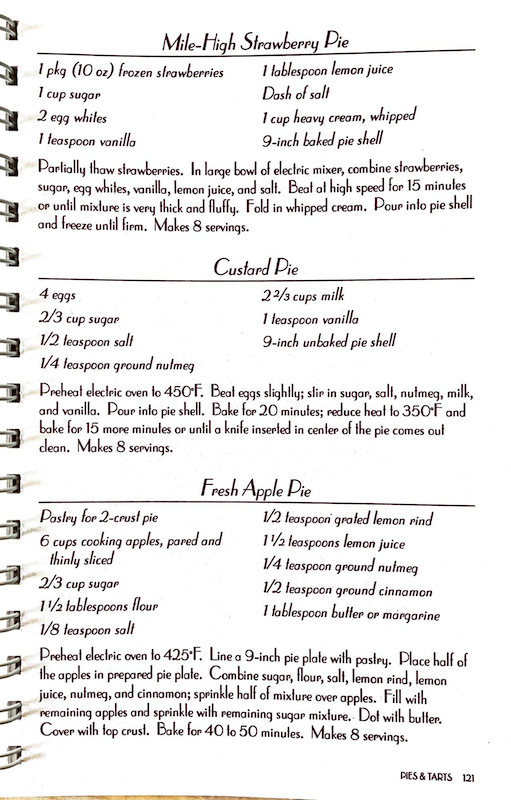 Mile-High Strawberry Pie
1 pkg (10 oz) frozen strawberries
1 cup sugar
2 egg whites
1 teaspoon vanilla
1 tablespoon lemon juice
Dash of salt
1 cup heavy cream, whipped
9-inch baked pie shell
Partially thaw strawberries. In large bowl of electric mixer, combine strawberries,
sugar, egg whites, vanilla, lemon juice, and salt. Beat at high speed for 15 minutes
or until mixture is very thick and fluffy. Fold in whipped cream. Pour into pie shell
and freeze until firm. Makes 8 servings.
Custard Pie
4 eggs
2/3 cup sugar
1/2 teaspoon salt
1/4 teaspoon ground nutmeg
2 2/3 cups milk
1 teaspoon vanilla
9-inch unbaked pie shell
Preheat electric oven to 450°F. Beat eggs slightly; stir in sugar, salt, nutmeg, milk,
and vanilla. Pour into pie shell. Bake for 20 minutes; reduce heat to 350°F and
bake for 15 more minutes or until a knife inserted in center of the pie comes out
clean. Makes 8 servings.
Fresh Apple Pie
Pastry for 2-crust pie
6 cups cooking apples, pared and
thinly sliced
2/3 cup sugar
1 1/2 tablespoons flour
1/8 teaspoon salt
1/2 teaspoon grated lemon rind
1 1/2 teaspoons lemon juice
1/4 teaspoon ground nutmeg
1/2 teaspoon ground cinnamon
1 tablespoon butter or margarine
Preheat electric oven to 425°F. Line a 9-inch pie plate with pastry. Place half of
the apples in prepared pie plate. Combine sugar, flour, salt, lemon rind, lemon
juice, nutmeg, and cinnamon; sprinkle half of mixture over apples. Fill with
remaining apples and sprinkle with remaining sugar mixture. Dot with butter.
Cover with top crust. Bake for 40 to 50 minutes. Makes 8 servings.
PIES & TARTS 121